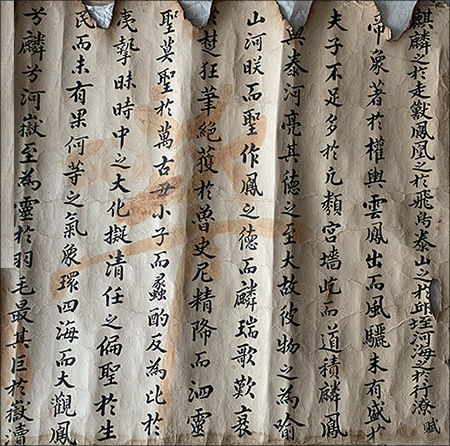 麒麟之於走獸鳳凰之於飛鳥泰山之於邱垤河海之於行潦賦
帝象著於權輿雲鳳出而風驪未有盛於
夫子不足多於凡類宮墻屹而道積麟鳳
與泰河亮其德之至大故彼物之為喻
山河暎而聖作鳳之德而麟瑞歌歎衰
於楚狂筆絕獲於魯史尼精降而泗靈
聖莫聖於萬古丑小子而蠡酌反為此於
夷摯昧時中之大化擬清任之偏聖於生
民而未有果何等之氣象環四海而大觀鳳
兮麟兮河嶽至為靈於羽毛最其巨於嶽瀆